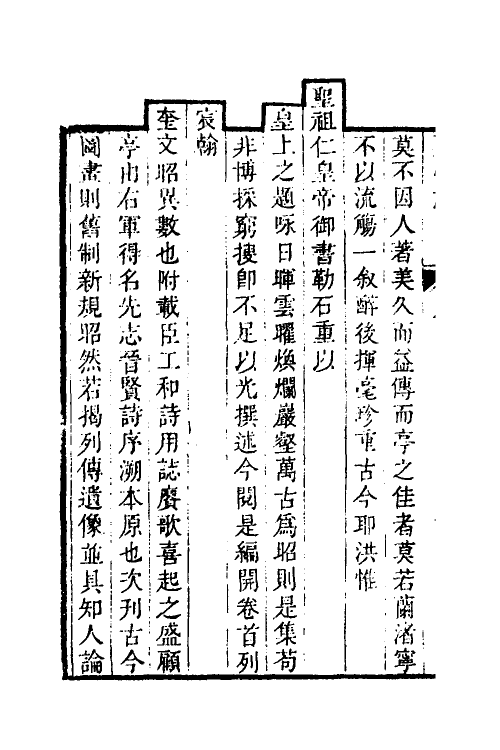 莫不因人著美久而益傳而亭之佳者莫若蘭渚寧
不以流觴一敘醉後揮毫珍重古今耶洪惟
聖祖仁皇帝御書勒石重以
皇上之題咏日暉雲曜煥爛巖壑萬古為昭則是集苟
非博採窮搜卽不足以光撰述今閱是編開卷首列
宸翰
奎文昭異數也附載臣工和詩用誌賡歌喜起之盛顧
亭由右軍得名先志晉賢詩序溯本原也次列古今
圖畫則舊制新規昭然若揭列傳遺像並具知人論